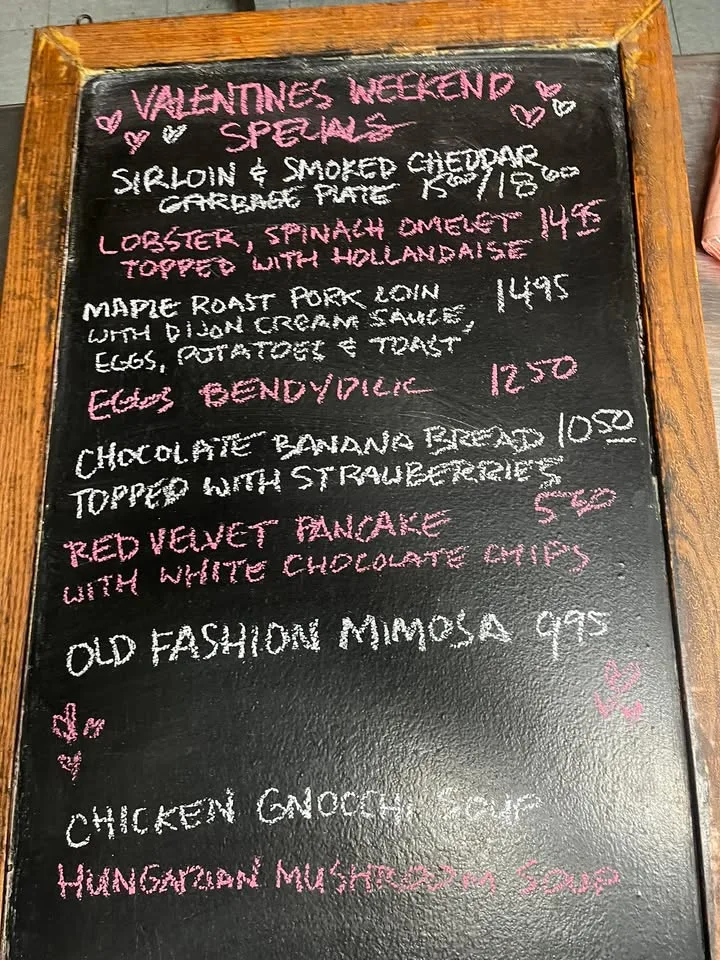 VALENTINES WEEKEND
SPECIALS
SIRLOIN & SMOKED CHEDDAR
GARBAGE PLATE 15⁰⁰/18⁰⁰
LOBSTER, SPINACH OMELET 14⁹⁵
TOPPED WITH HOLLANDAISE
MAPLE ROAST PORK LOIN 14⁹⁵
WITH DIJON CREAM SAUCE,
EGGS, POTATOES & TOAST
EGGS BENDYDILIC 12⁵⁰
CHOCOLATE BANANA BREAD 10⁵⁰
TOPPED WITH STRAWBERRIES
RED VELVET PANCAKE 5⁵⁰
WITH WHITE CHOCOLATE CHIPS
OLD FASHION MIMOSA 9⁹⁵
CHICKEN GNOCCHI SOUP
HUNGARIAN MUSHROOM SOUP